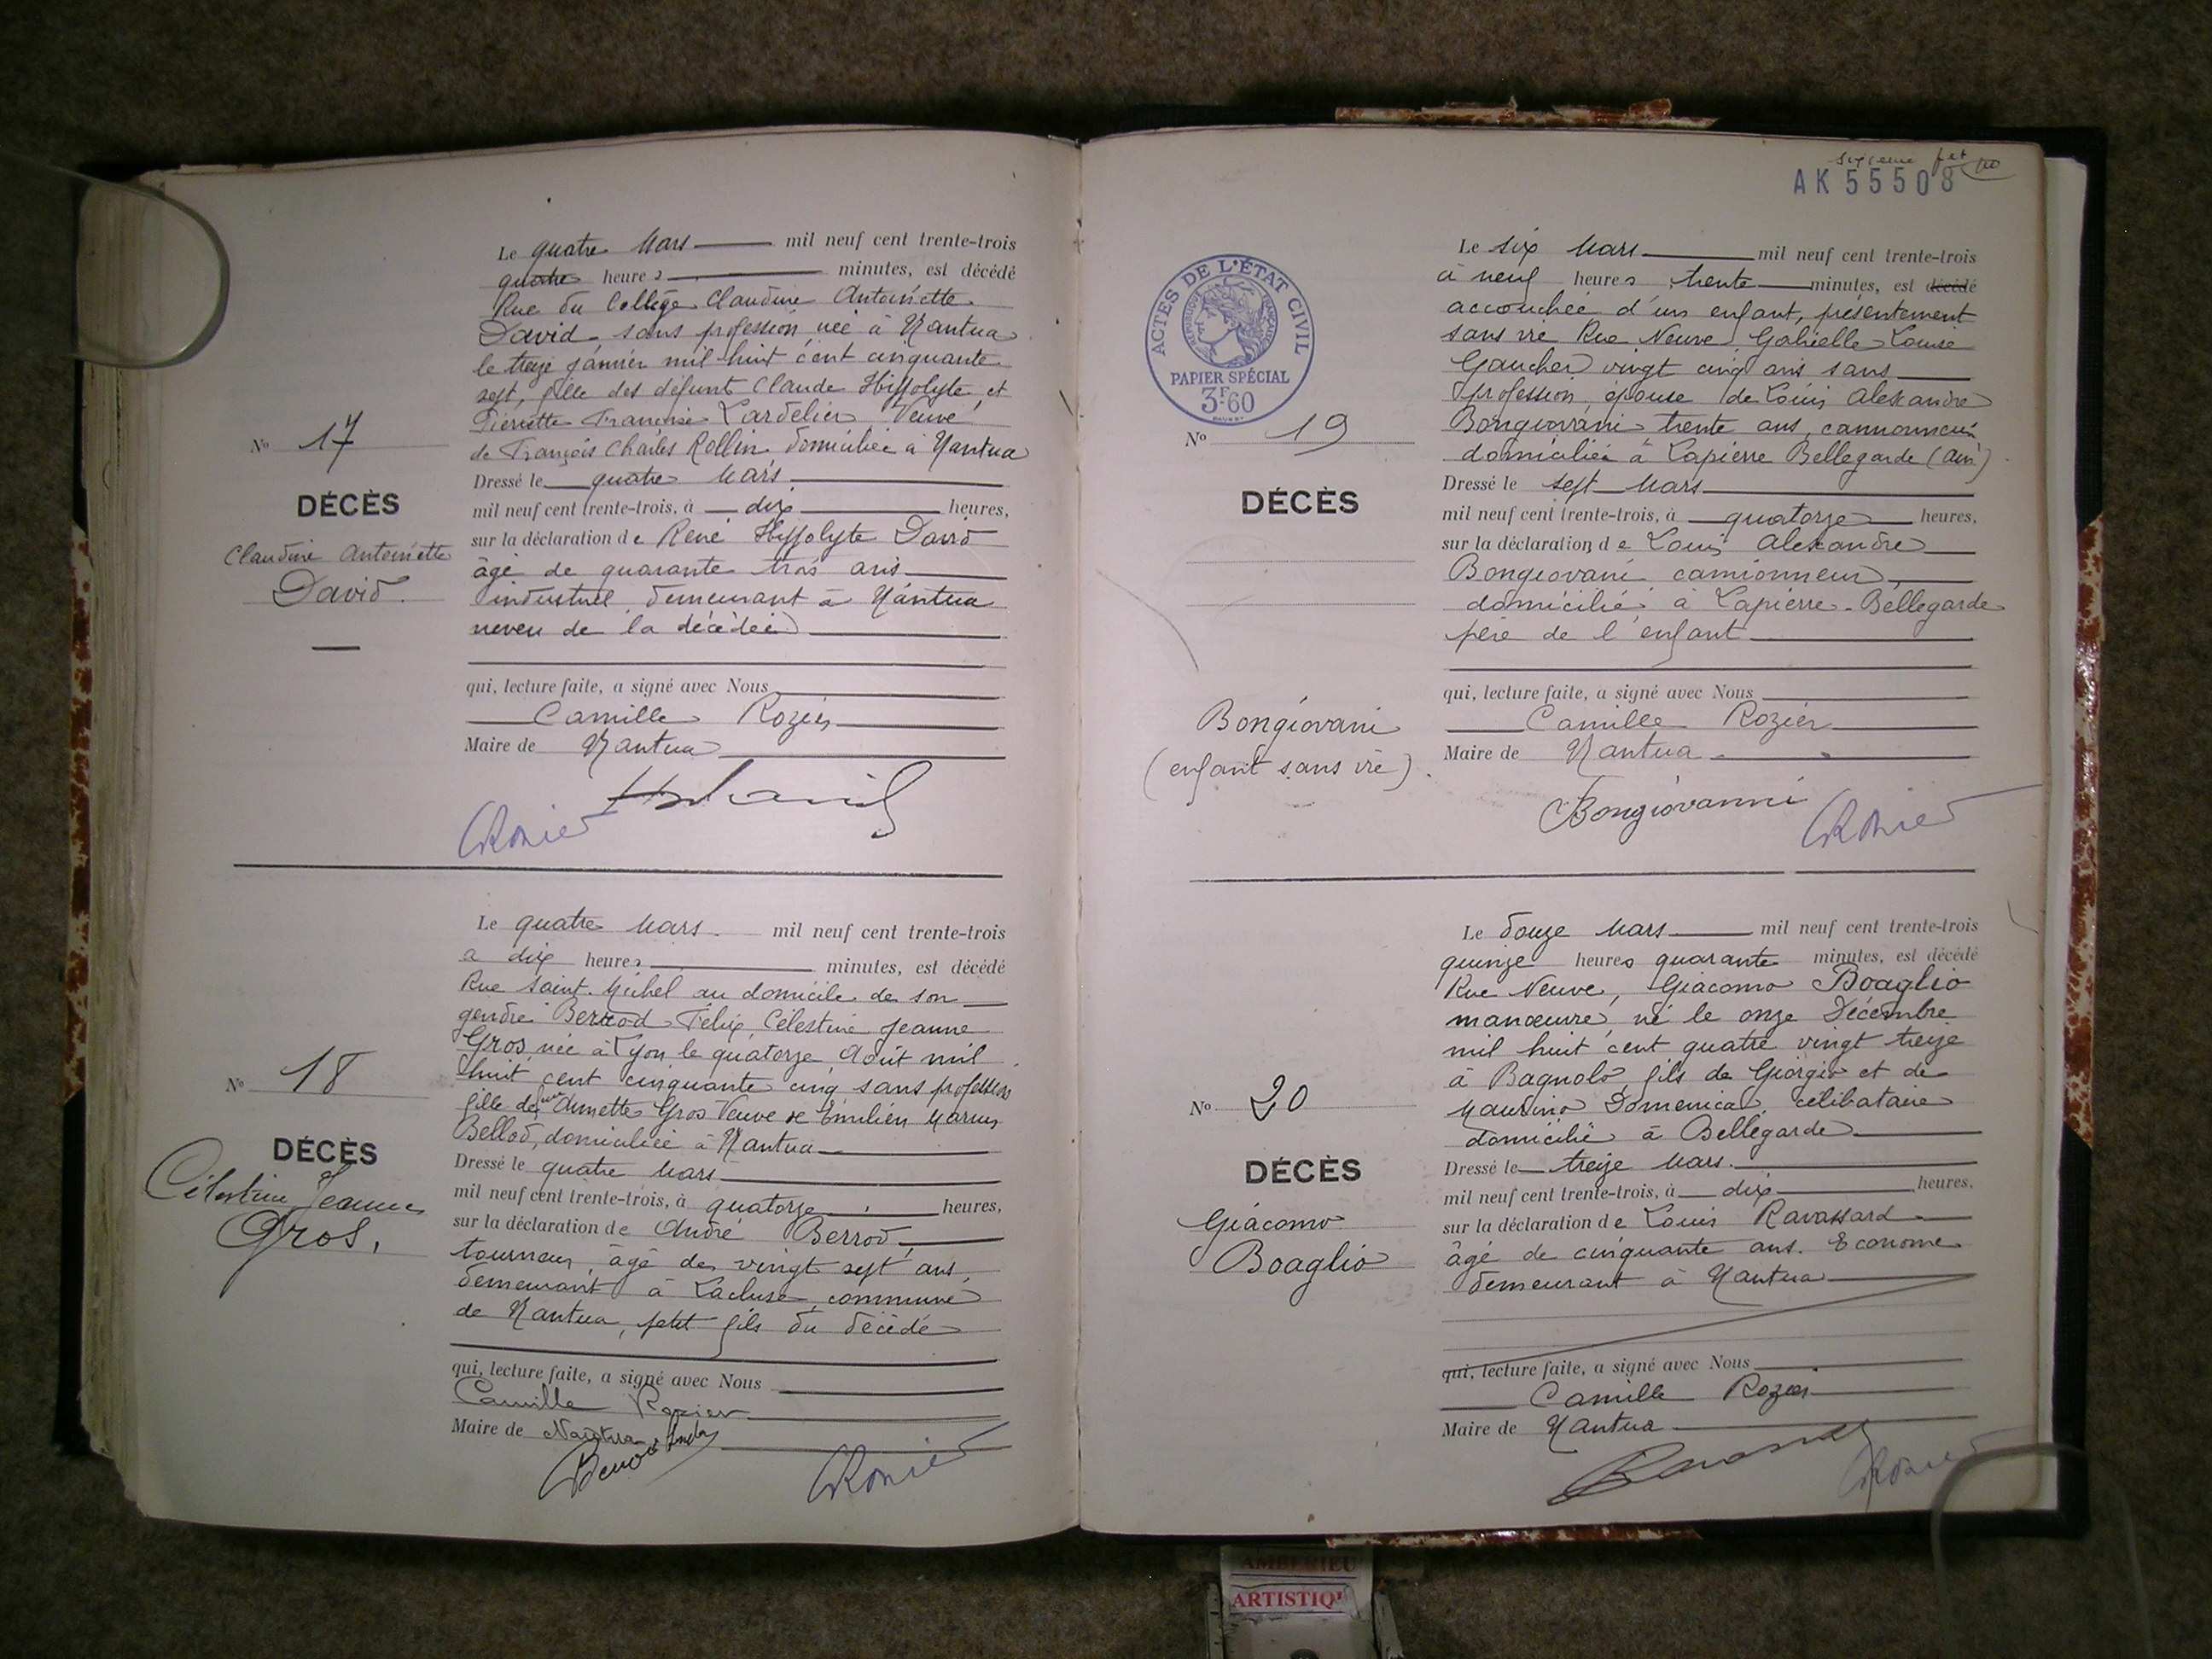 Le quatre Mars mil neuf cent trente-trois
quatre heures minutes, est décédé
Rue du Collège Claudine Antoinette
David sans profession, née à Nantua
le treize janvier mil huit cent cinquante
sept, fille des défunt Claude Hippolyte, et
Pierrette Françoise Lardelier Veuve
de François Charles Rollin domiciliée à Nantua
Nº 17
DÉCÈS
Claudine Antoinette
David
Dressé le quatre Mars
mil neuf cent trente-trois, à dix heures,
sur la déclaration de René Hippolyte David
âgé de quarante trois ans
industriel, demeurant à Nantua
neveu de la décédée
qui, lecture faite, a signé avec Nous
Camille Rozier
Maire de Nantua
CRozier
Le quatre Mars mil neuf cent trente-trois
a dix heures minutes, est décédé
Rue Saint-Michel au domicile de son
gendre Berrod Félix, Célestine Jeanne
Gros, née à Lyon le quatorze Août mil
huit cent cinquante cinq sans profession
fille de Annette Gros Veuve de Emilien Marius
Bellod, domiciliée à Nantua
Nº 18
DÉCÈS
Célestine Jeanne
Gros.
Dressé le quatre Mars
mil neuf cent trente-trois, à quatorze heures,
sur la déclaration de André Berrod,
tourneur, âgé de vingt sept ans,
demeurant à Lacluse, commune
de Nantua, petit fils du décédé
qui, lecture faite, a signé avec Nous
Camille Rozier
Maire de Nantua
Berrod André
CRozier
AK 55508
ACTES DE L'ÉTAT CIVIL
RÉPUBLIQUE FRANÇAISE
PAPIER SPÉCIAL
3F60
Le six Mars mil neuf cent trente-trois
à neuf heures trente minutes, est décédé
accouchée d'un enfant, présentement
sans vie Rue Neuve, Gabrielle Louise
Gaucher vingt cinq ans sans
profession, épouse de Louis Alexandre
Bongiovani trente ans, camionneur
domiciliée à Lapierre Bellegarde (Ain)
Nº 19
DÉCÈS
Bongiovani
(enfant sans vie)
Dressé le sept Mars
mil neuf cent trente-trois, à quatorze heures,
sur la déclaration de Louis Alexandre
Bongiovani camionneur,
domicilié à Lapierre-Bellegarde
père de l'enfant
qui, lecture faite, a signé avec Nous
Camille Rozier
Maire de Nantua
Bongiovanni CRozier
Le douze Mars mil neuf cent trente-trois
quinze heures quarante minutes, est décédé
Rue Neuve, Giacomo Boaglio
manœuvre, né le onze Décembre
mil huit cent quatre vingt treize
à Bagnolo, fils de Giorgio et de
Maurino Domenica, célibataire
domicilié à Bellegarde
Nº 20
DÉCÈS
Giacomo
Boaglio
Dressé le treize Mars
mil neuf cent trente-trois, à dix heures,
sur la déclaration de Louis Ravassard
âgé de cinquante ans. Econome
demeurant à Nantua
qui, lecture faite, a signé avec Nous
Camille Rozier
Maire de Nantua
CRozier
AMBERIEU
ARTISTIQ